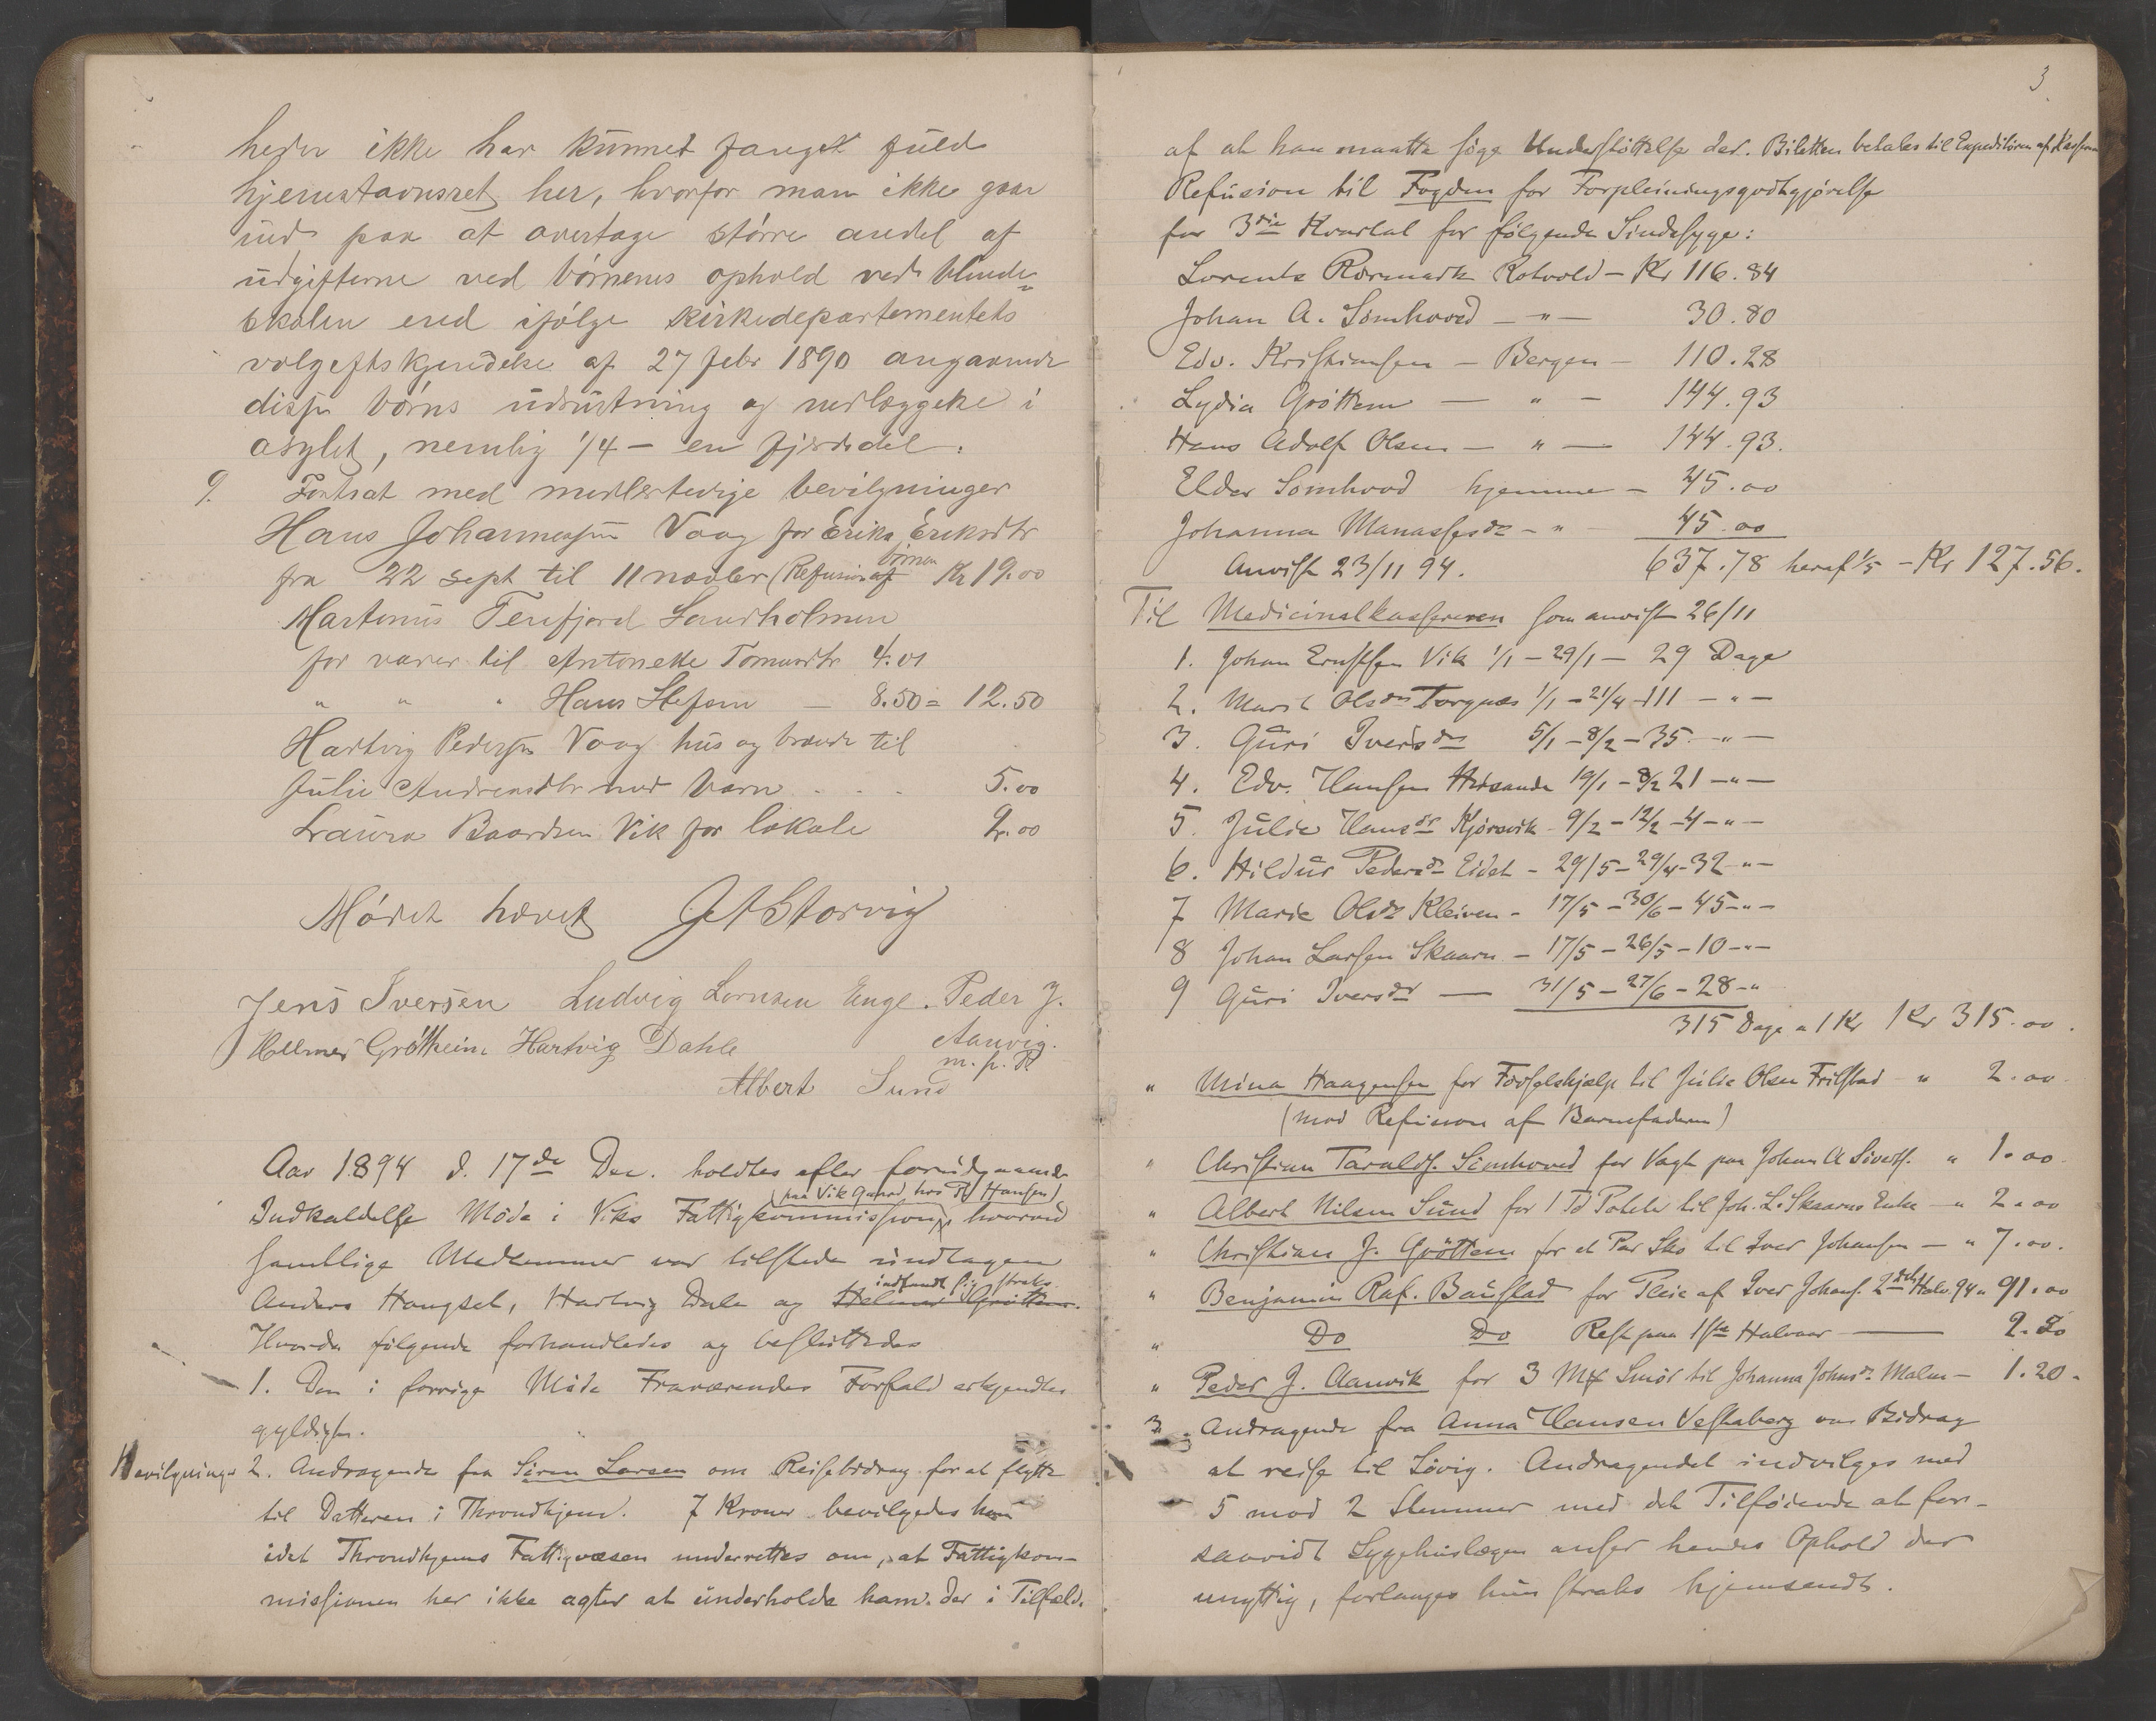 heder ikke har kunnet fanget fuld
hjemstavnsret her, hvorfor man ikke gaar
ind paa at overtage större andel af
udgifterne ved börnenes ophold ved blinde-
skolen end ifölge kirkedepartementets
afgjörelse af 27 febr 1890 angaaende
disse börns udrustning og i
asylet, nemlig 1/4 - en fjerdedel.
9. Fortsat med bevilgninger
Hans Johannessen Vaag for Erika Eriksdtr
fra 22 sept til 11 novbr (Refusion af börnen Kr 19.00
Martinus Terfjord Sandholmen
for varer til Antonette Tomasdtr 4.00
" " " Hans Stefsen — 8.50 = 12.50
Hartvig Pedersen Vaag hus og brænde til
Julie Andreasdtr med barn . . . 5.00
Laura Baardsen Vik for lokale 2.00
Mödet hævet J A Storvig
Jens Iversen Ludvig Lornsen Enge. Peder J.
Hellmer Gröttheim Hartvig Dahle Aanvig.
m. p. P
Albert Sund
Aar 1894 d. 17de Dec. holdtes efter forudgaaende
(paa Vik Gaard hos P Hansen)
Indkaldelse Möde i Viks Fattigkommission, hvorved
samtlige Medlemmer var tilstede undtagen
indfandt sig straks
Anders Haugset, Hartvig Dale og Helmer Gröttem.
Hvorda fölgende forhandledes og besluttedes
1. De i forrige Möde Fraværendes Forfald erkjendtes
gyldigt.
Bevilgning. 2. Andragende fra Sören Larsen om Reisebidrag for at flytte
til Datteren i Throndhjem. 7 Kroner bevilgedes ham
idet Throndhjems Fattigvæsen underrettes om, at Fattigkom-
missionen her ikke agter at underholde ham der i Tilfælde
3
af at han maatte söge Understöttelse der. Biletten betales til Expeditören af Kassereren
Refusion til Fogden for Forpleiningsgodtgjörelse
for 3die Kvartal for fölgende Sindssyge:
Lorents Rörmark Rotvold - Kr 116.84
Johan A. Sömhoved - " - 30.80
Edv. Kristiansen - Bergen - 110.28
Lydia Gröttem - " - 144.93
Hans Adolf Olsen - " - 144.93.
Elder Sömhovd hjemme - 45.00
Johanna Manassesdr - " - 45.00
Anvist 23/11 94. 637.78 heraf 1/5 - Kr 127.56.
Til Medicinalkassereren som anvist 26/11
1. Johan Ernstsen Vik 1/1 - 29/1 - 29 Dage
2. Marit Olsdr Torgnes 1/1 - 21/4 - 111 - " -
3. Guri Iversdr 5/1 - 8/2 - 35 - " -
4. Edv. Hansen 19/1 - 8/2 21 - " -
5. Julie Hansdr Kjörsvik - 9/2 - 12/2 - 4 - " -
6. Hildur Pedersdr Eidet - 29/5 - 29/4 - 32 - " -
7 Marie Olsdr Kleiven - 17/5 - 30/6 - 45 - " -
8 Johan Larsen Skaarn - 17/5 - 26/5 - 10 - " -
9 Guri Iversdr — 31/5 - 27/6 - 28 - "
315 Dage a 1 Kr Kr 315.00.
" Mina Haagensen for Födselshjælp til Julie Olsen Frilstad " 2.00
(mod Refusion af Barnefaderen)
" Christian Taralds. Sömhoved for Vagt paa Johan A Siverts. " 1.00
" Albert Nilsen Sund for 1 Td Poteter til Joh. L. Skaarns Enke - " 2.00
" Christian J. Gröttem for et Par Sko til Iver Johansen - " 7.00.
" Benjamin Raf. Baustad for Pleie af Iver Johans. 2det Halv. 94 " 91.00
" Do Do Rest paa 1ste Halvaar — 2.50
" Peder J. Aanvik for 3 Mk Smör til Johanna Johnsdr Malm - 1.20.
3. Andragende fra Anna Hansen Vestaberg om Bidrag
at reise til Sövig. Andragendet indvilges med
5 mod 2 Stemmer med det Tilföiende at for-
saavidt Sygehuslægen anser hendes Ophold der
unyttig, forlanges hun straks hjemsendt.